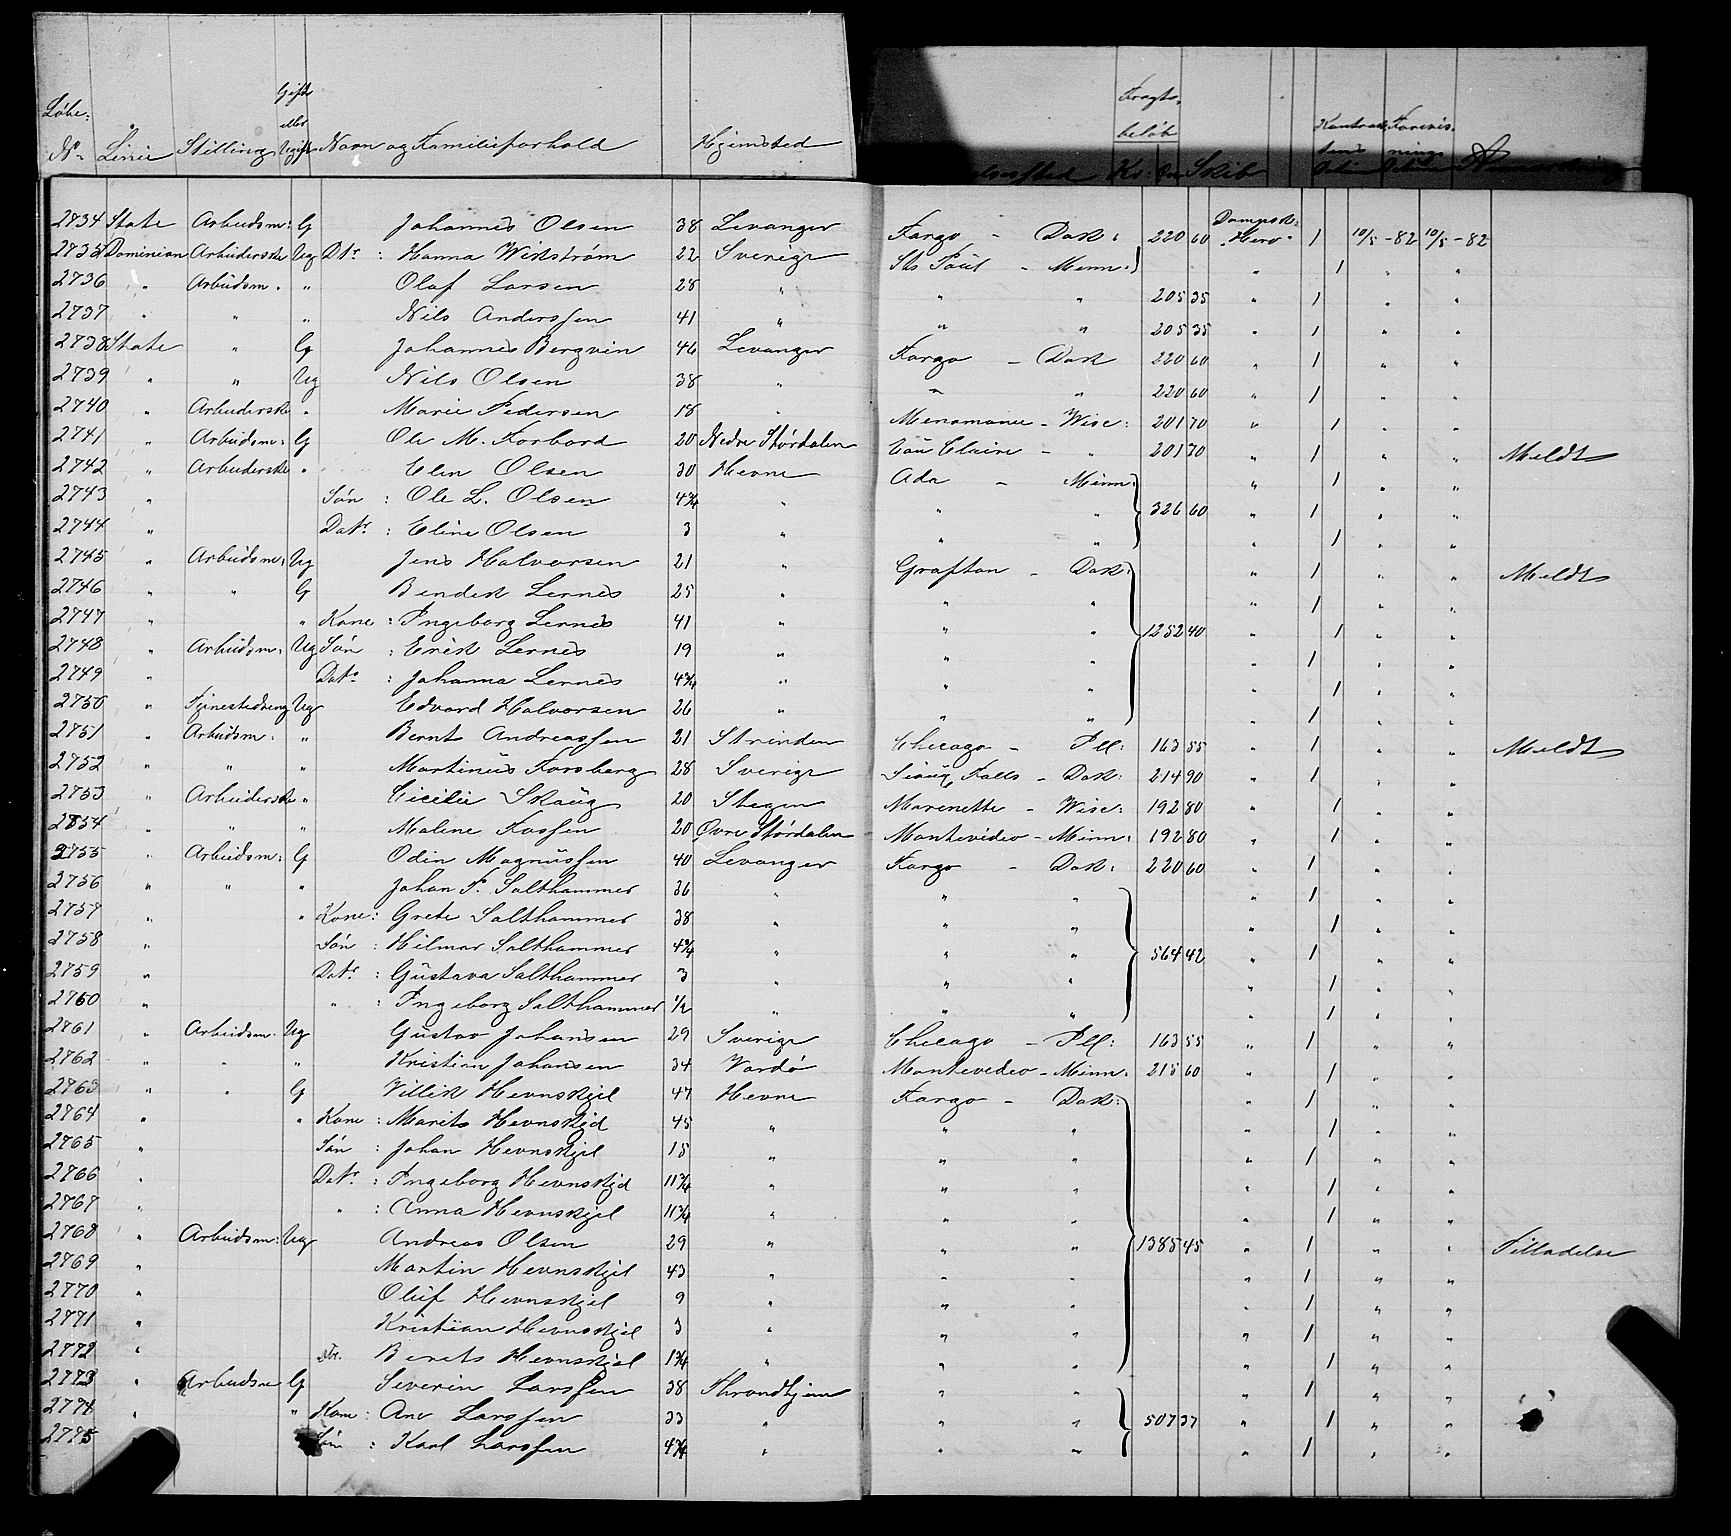 Løbe: Nº Linie Stilling Gift eller Ugift Navn og Familieforhold Hjemsted Fragtbeløb Kr. Skib
2734 State Arbeidsm: G Johannes Olsen 38 Levanger Fargo - Dak: 220 60 Dampsk: "Hero" 1 10/5 - 82 10/5 - 82
2735 Dominion Arbeiderske Ug Datr : Hanna Wikstrøm 22 Sverige St: Paul - Minn: " 1 " "
2736 " Arbeidsm. " Olaf Larsen 28 " " " 205 35 " 1 " "
2737 " " " Nils Anderssen 41 " " " 205 35 " 1 " "
2738 State " G Johannes Bergvin 46 Levanger Fargo - Dak 220 60 " 1 " "
2739 " " Ug Nils Olsen 38 " " " 220 60 " 1 " "
2740 " Arbeiderske " Marie Pedersen 18 " Menomonie - Wisc: 201 70 " 1 " "
2741 " Arbeidsm: G Ole M. Forbord 20 Nedre Størdalen Eau Claire - " 201 70 " 1 " " Meldt
2742 " Arbeiderske " Elen Olsen 30 Hevne Ada - Minn: " 1 " "
2743 " Søn : Ole L. Olsen 4¾ " " " 326 60 " 1 " "
2744 " Datr : Eline Olsen 3 " " " " 1 " "
2745 " Arbeidsm: Ug Jens Halvorsen 21 " Grafton - Dak: " 1 " " Meldt
2746 " " G Bendik Lernes 25 " " " " 1 " "
2747 " " Kone : Ingeborg Lernes 41 " " " 1252 40 " 1 " "
2748 " Arbeidsm: Ug Søn : Erik Lernes 19 " " " " 1 " "
2749 " Datr : Johanna Lernes 4¾ " " " " 1 " "
2750 " Ug Edvard Halvorsen 26 " " " " 1 " "
2751 " Arbeidsm. " Bernt Andreassen 21 Strinden Chicago - Ill: 163 55 " 1 " " Meldt
2752 " " " Martinus Forsberg 28 Sverige Sioux Falls - Dak: 214 90 " 1 " "
2753 " Arbeiderske " Cicilie Skaug 20 Stegen Marenette - Wisc: 192 80 " 1 " "
2754 " " " Malene Fossen 20 Øvre Størdalen Montevideo - Minn: 192 80 " 1 " "
2755 " Arbeidsm: G Odin Magnussen 40 Levanger Fargo - Dak: 220 60 " 1 " "
2756 " " " Johan F. Salthammer 36 " " " " 1 " "
2757 " " Kone : Grete Salthammer 38 " " " " 1 " "
2758 " Søn : Hilmar Salthammer 4¾ " " " 564 42 " 1 " "
2759 " Datr : Gustava Salthammer 3 " " " " 1 " "
2760 " " : Ingeborg Salthammer ½ " " " " 1 " "
2761 " Arbeidsm. Ug Gustav Johansen 29 Sverige Chicago - Ill: 163 55 " 1 " "
2762 " " " Kristian Johansen 34 Vardø Montevideo - Minn: 215 60 " 1 " "
2763 " " G Villik Hevnskjel 47 Hevne Fargo - Dak: " 1 " "
2764 " " Kone : Marits Hevnskjel 45 " " " " 1 " "
2765 " Søn : Johan Hevnskjel 15 " " " " 1 " "
2766 " Datr : Ingeborg Hevnskjel 11¾ " " " " 1 " "
2767 " " : Anna Hevnskjel 11¾ " " " " 1 " "
2768 " Arbeidsm: Ug Andreas Olsen 29 " " " 1385 45 " 1 " " Tilladelse
2769 " Martin Hevnskjel 43 " " " " 1 " "
2770 " Oluf Hevnskjel 9 " " " " 1 " "
2771 " Kristian Hevnskjel 3 " " " " 1 " "
2772 " Dtr. Berets Hevnskjel 1¾ " " " " 1 " "
2773 " Arbeidsm G Severin Larssen 38 Throndhjem " " " 1 " "
2774 " " Kone : Ane Larssen 33 " " " 507 37 " 1 " "
2775 " Søn : Karl Larssen 4¾ " " " " 1 " "